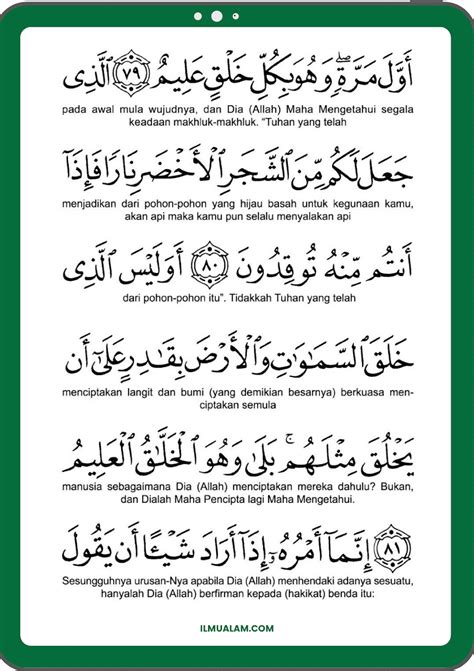 أَوَّلَ مَرَّةٍۖ وَهُوَ بِكُلِّ خَلْقٍ عَلِيمٌ ۝٧٩ ٱلَّذِى
pada awal mula wujudnya, dan Dia (Allah) Maha Mengetahui segala
keadaan makhluk-makhluk. “Tuhan yang telah
جَعَلَ لَكُم مِّنَ ٱلشَّجَرِ ٱلْأَخْضَرِ نَارًا فَإِذَآ
menjadikan dari pohon-pohon yang hijau basah untuk kegunaan kamu,
akan api maka kamu pun selalu menyalakan api
أَنتُم مِّنْهُ تُوقِدُونَ ۝٨٠ أَوَلَيْسَ ٱلَّذِى
dari pohon-pohon itu”. Tidakkah Tuhan yang telah
خَلَقَ ٱلسَّمَـٰوَٰتِ وَٱلْأَرْضَ بِقَـٰدِرٍ عَلَىٰٓ أَن
menciptakan langit dan bumi (yang demikian besarnya) berkuasa men-
ciptakan semula
يَخْلُقَ مِثْلَهُم ۚ بَلَىٰ وَهُوَ ٱلْخَلَّـٰقُ ٱلْعَلِيمُ
manusia sebagaimana Dia (Allah) menciptakan mereka dahulu? Bukan,
dan Dialah Maha Pencipta lagi Maha Mengetahui.
۝٨١ إِنَّمَآ أَمْرُهُۥٓ إِذَآ أَرَادَ شَيْـًٔا أَن يَقُولَ
Sesungguhnya urusan-Nya apabila Dia (Allah) menhendaki adanya sesuatu,
hanyalah Dia (Allah) berfirman kepada (hakikat) benda itu:
ILMUALAM.COM